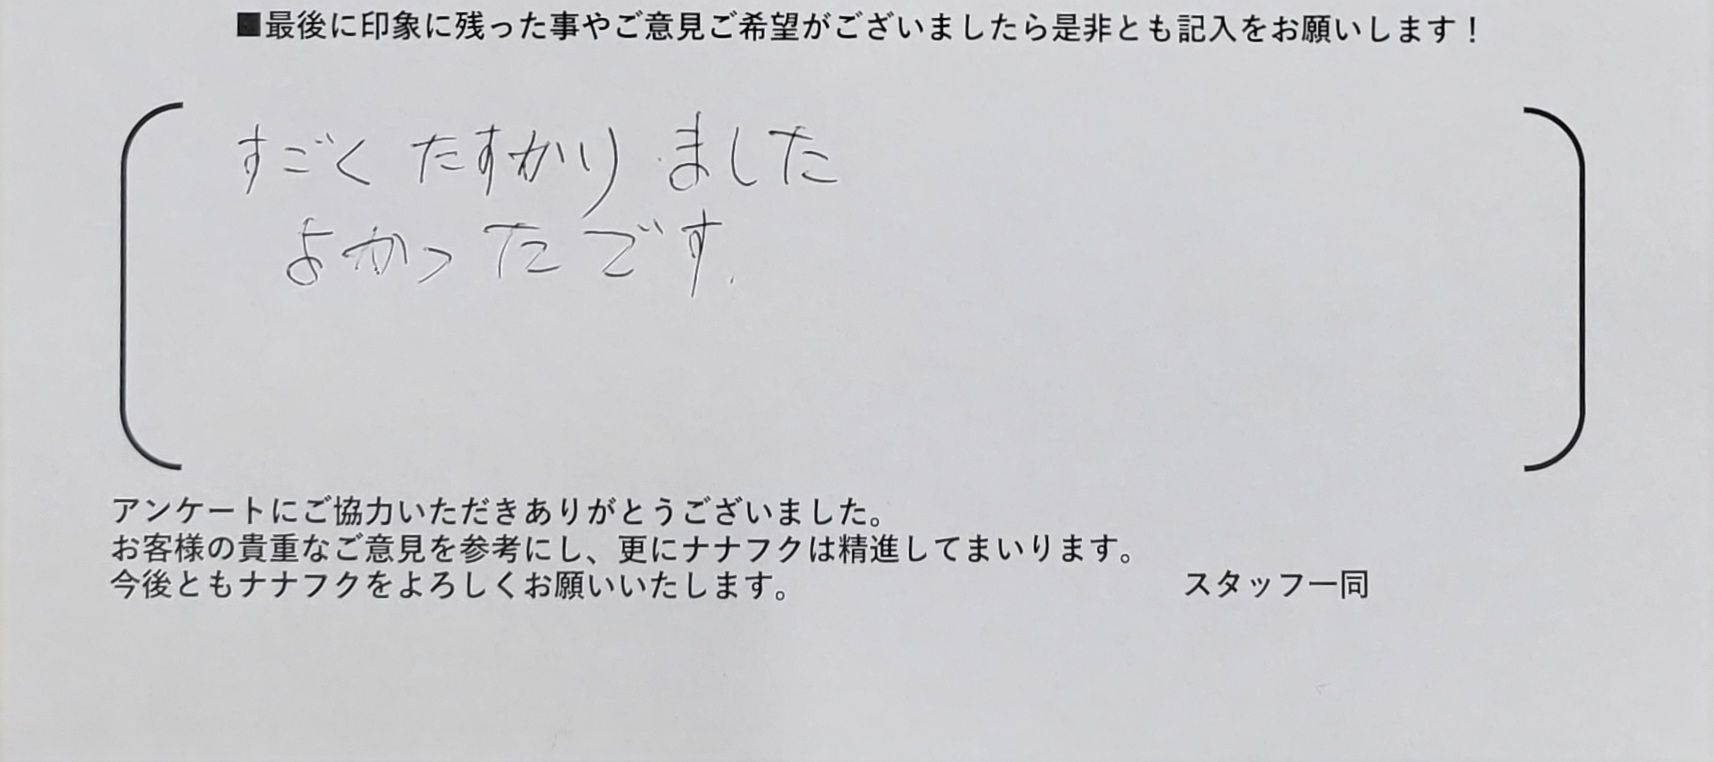 ■最後に印象に残った事やご意見ご希望がございましたら是非とも記入をお願いします！
すごく たすかり ました
よかったです.
アンケートにご協力いただきありがとうございました。
お客様の貴重なご意見を参考にし、更にナナフクは精進してまいります。
今後ともナナフクをよろしくお願いいたします。
スタッフ一同